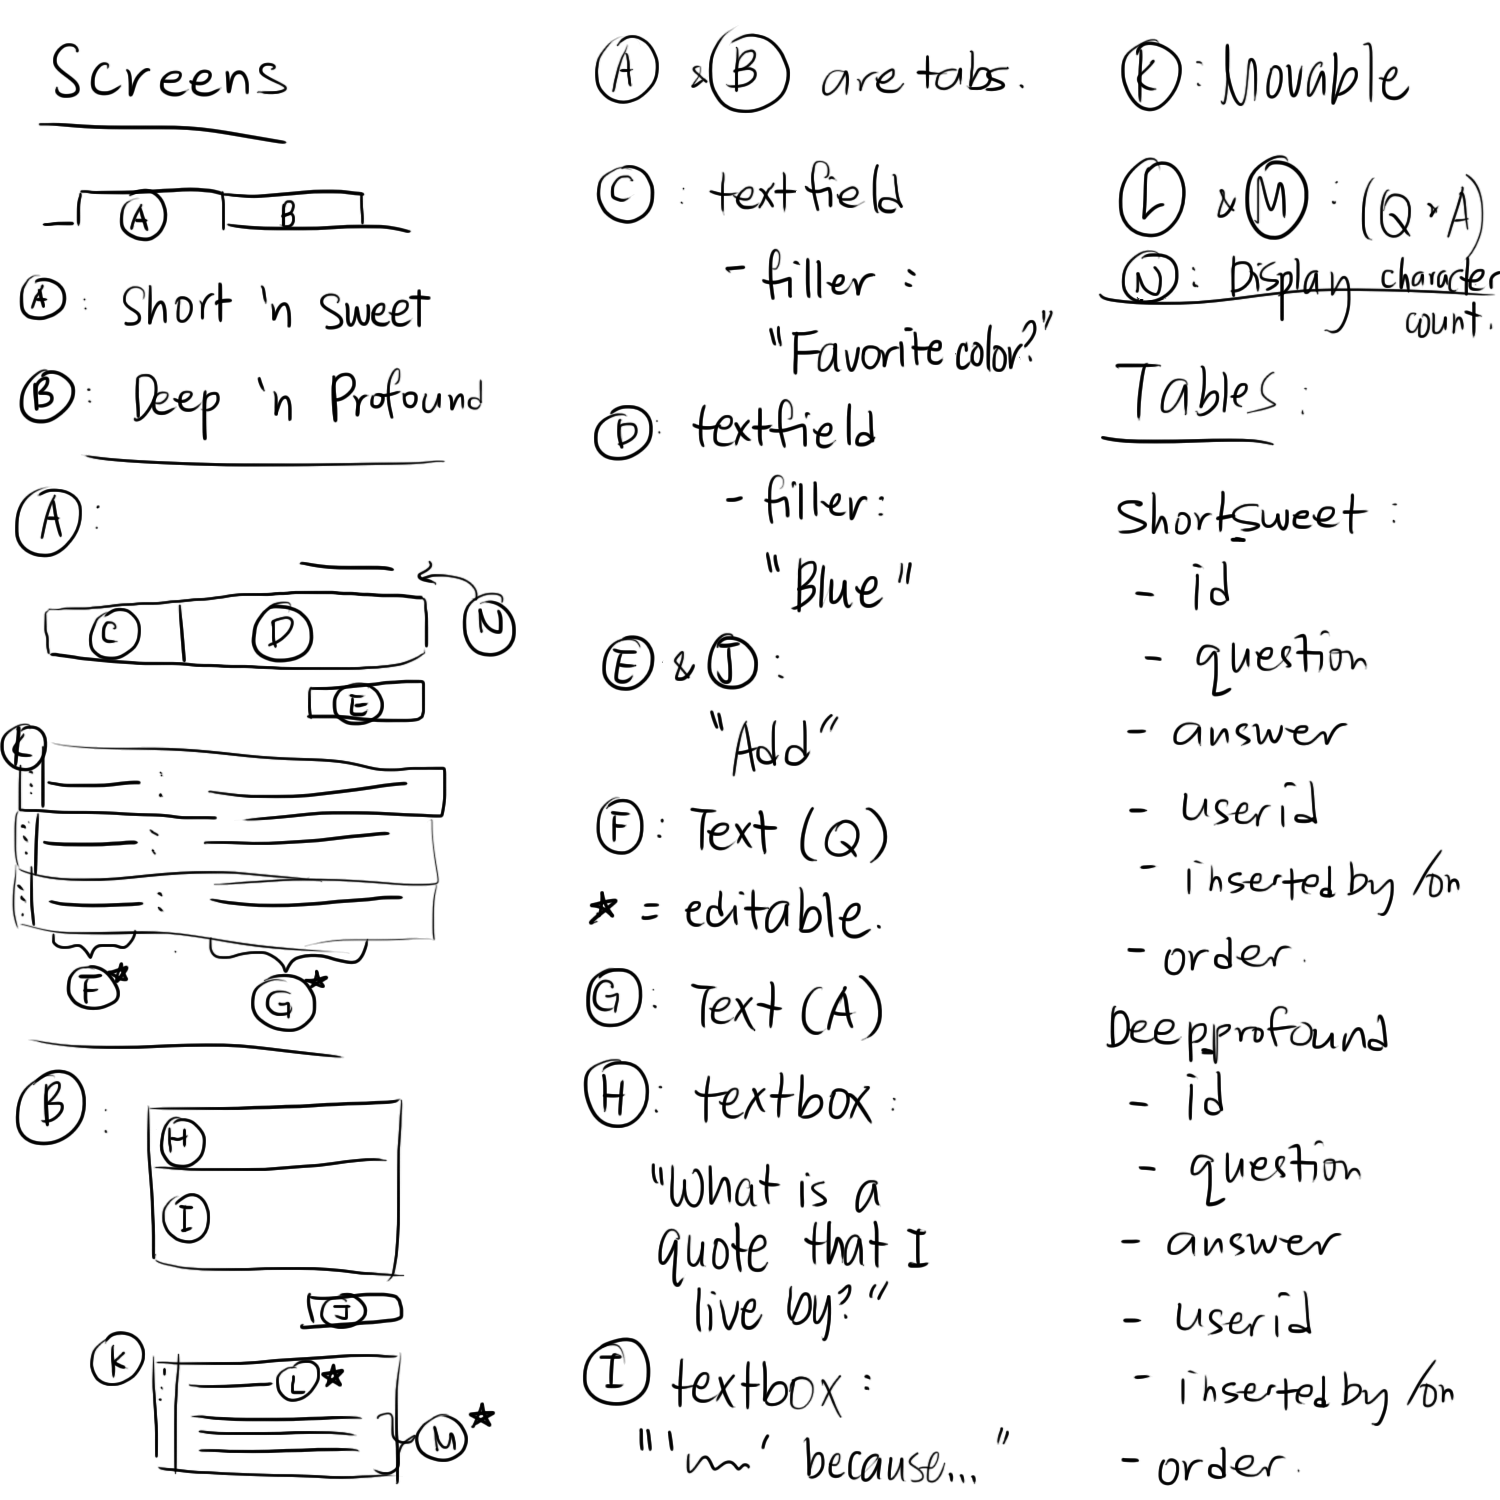 Screens
A B
A : Short 'n Sweet
B : Deep 'n Profound
A :
N
C D
E
K
F* G*
B :
H
I
J
K
L*
M*
A & B are tabs.
C : textfield
- filler :
"Favorite color?"
D : textfield
- filler :
"Blue"
E & J :
"Add"
F : Text (Q)
* = editable.
G : Text (A)
H : textbox :
"What is a
quote that I
live by?"
I textbox :
"' ' because..."
K : Movable
L & M : (Q A)
N : Display character
count.
Tables :
Short_sweet :
- id
- question
- answer
- userid
- inserted by/on
- order.
Deep_profound
- id
- question
- answer
- userid
- inserted by/on
- order.